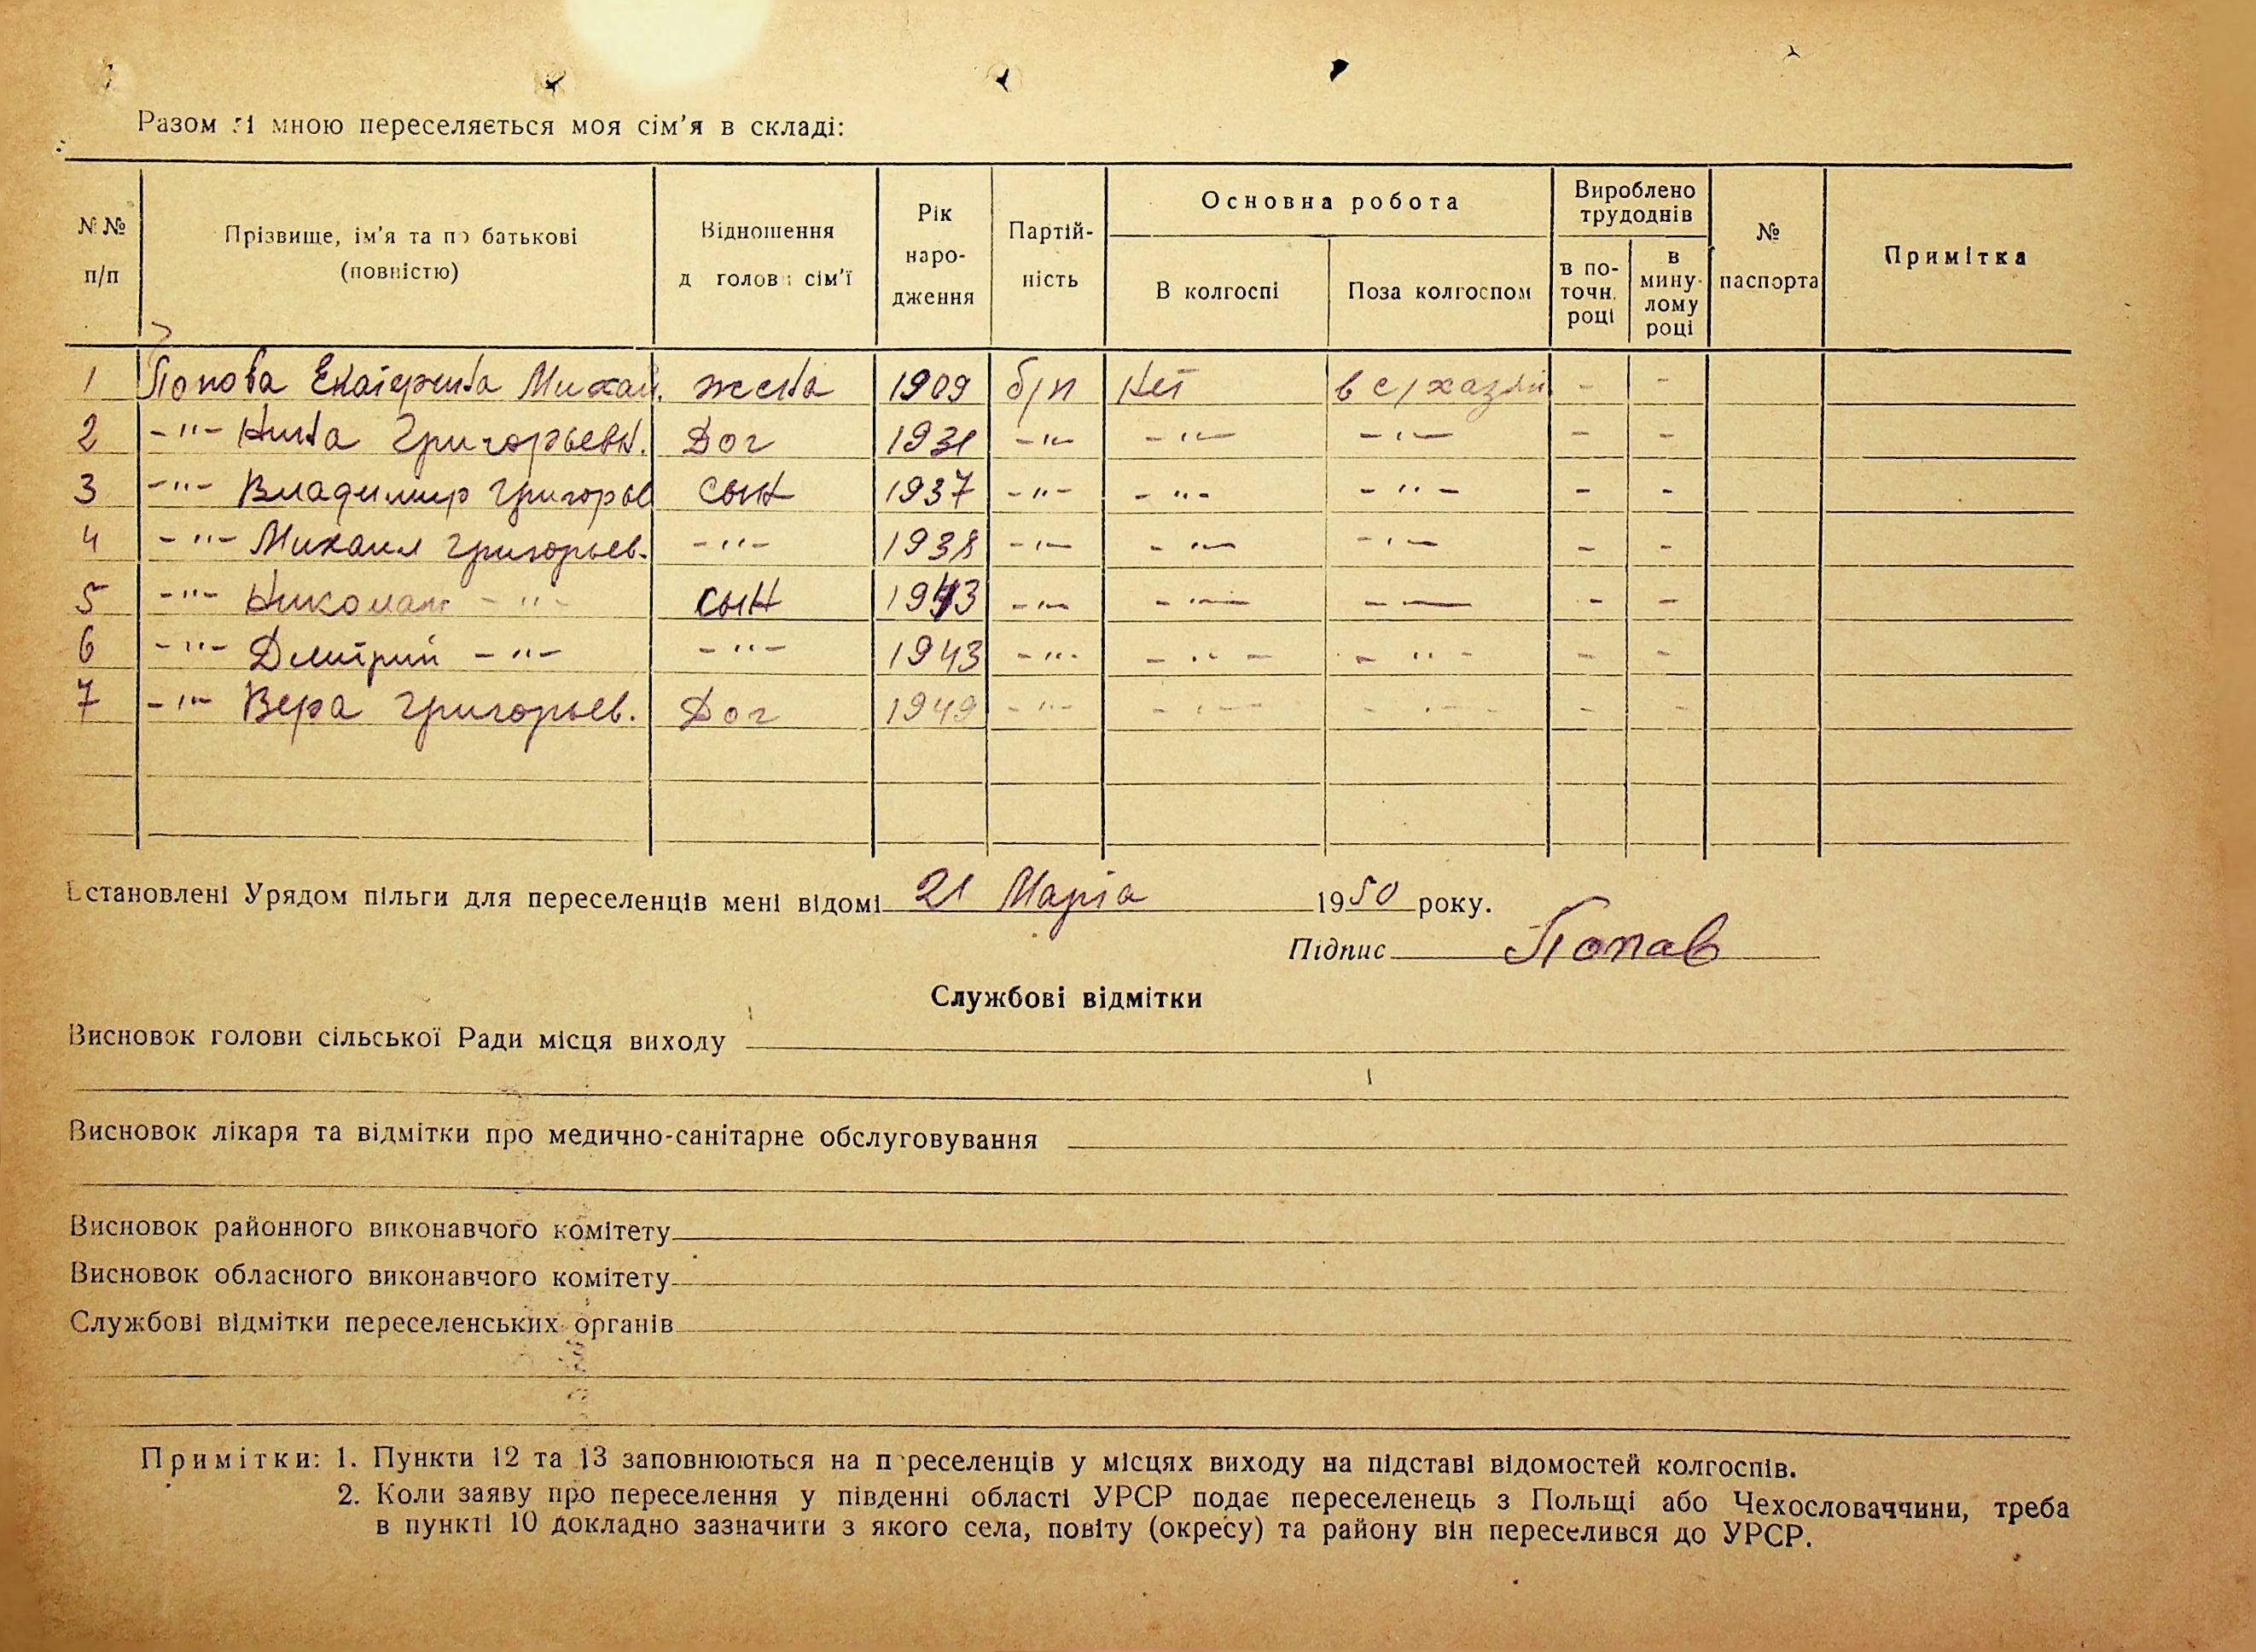 Разом зі мною переселяється моя сім'я в складі:
№№ п/п | Прізвище, ім'я та по батькові (повністю) | Відношення д голов і сім'ї | Рік народження | Партійність | Основна робота | Вироблено трудоднів | № паспорта | Примітка
В колгоспі | Поза колгоспом | в поточн. році | в минулому році
1 Попова Екатерина Михай. жена 1909 б/п Нет в с/хазяй - -
2 -"- Нина Григорьевн. Доч 1931 -"- -"- -"- - -
3 -"- Владимир Григорьев сын 1937 -"- -"- -"- - -
4 -"- Михаил Григорьев. -"- 1938 -"- -"- -"- - -
5 -"- Николай -"- сын 1943 -"- -"- -"- - -
6 -"- Дмитрий -"- -"- 1943 -"- -"- -"- - -
7 -"- Вера Григорьев. Доч 1949 -"- -"- -"- - -
Встановлені Урядом пільги для переселенців мені відомі 21 Марта 1950 року.
Підпис Попав
Службові відмітки
Висновок голови сільської Ради місця виходу
Висновок лікаря та відмітки про медично-санітарне обслуговування
Висновок районного виконавчого комітету
Висновок обласного виконавчого комітету
Службові відмітки переселенських органів
Примітки: 1. Пункти 12 та 13 заповнюються на переселенців у місцях виходу на підставі відомостей колгоспів.
2. Коли заяву про переселення у південні області УРСР подає переселенець з Польщі або Чехословаччини, треба
в пункті 10 докладно зазначити з якого села, повіту (окресу) та району він переселився до УРСР.